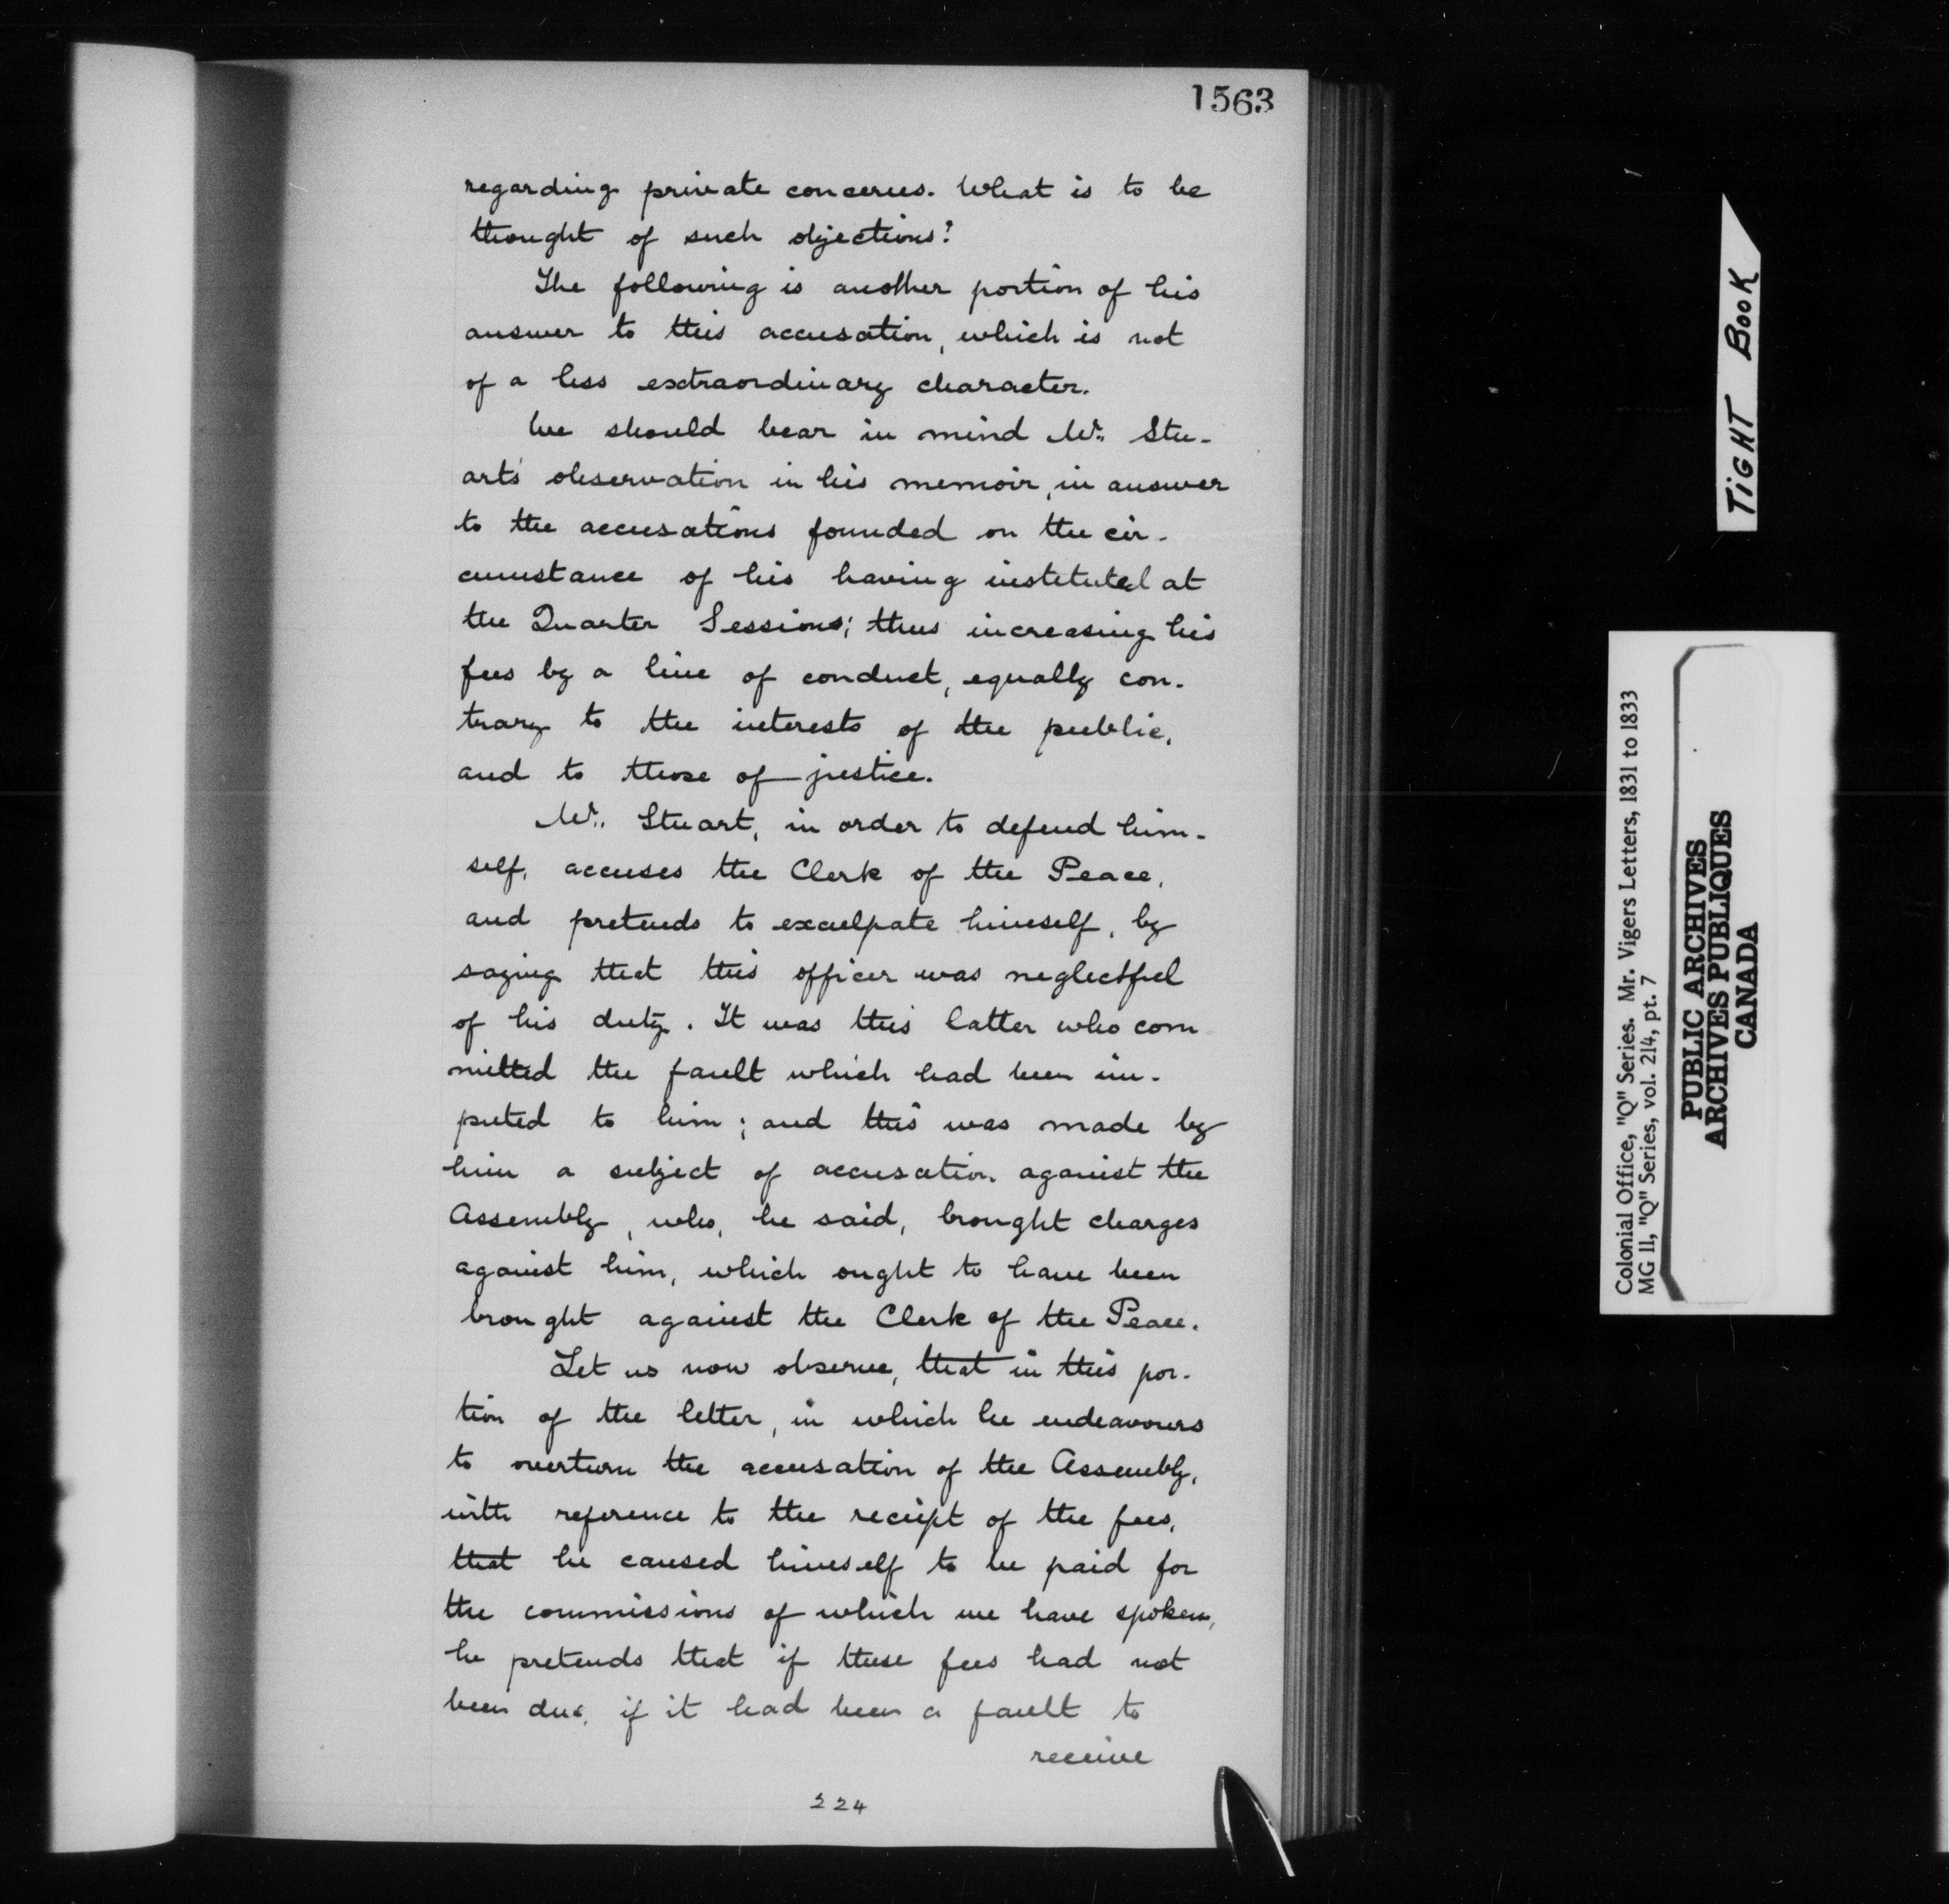 1563
regarding private concerns. What is to be
thought of such objections?
The following is another portion of his
answer to this accusation, which is not
of a less extraordinary character.
We should bear in mind Mr. Stu-
art's observation in his memoir, in answer
to the accusations founded on the cir-
cumstance of his having instituted at
the Quarter Sessions; thus increasing his
fees by a line of conduct, equally con-
trary to the interests of the public,
and to those of justice.
Mr. Stuart, in order to defend him-
self, accuses the Clerk of the Peace,
and pretends to exculpate himself, by
saying that this officer was neglectful
of his duty. It was this latter who com
mitted the fault which had been im-
puted to him; and this was made by
him a subject of accusation against the
Assembly, who, he said, brought charges
against him, which ought to have been
brought against the Clerk of the Peace.
Let us now observe, that in this por-
tion of the letter, in which he endeavours
to overturn the accusation of the Assembly,
with reference to the receipt of the fees,
that he caused himself to be paid for
the commissions of which we have spoken,
he pretends that if these fees had not
been due, if it had been a fault to
receive
224
TIGHT BOOK
Colonial Office, "Q" Series. Mr. Vigers Letters, 1831 to 1833
MG 11, "Q" Series, vol. 214, pt. 7
PUBLIC ARCHIVES
ARCHIVES PUBLIQUES
CANADA